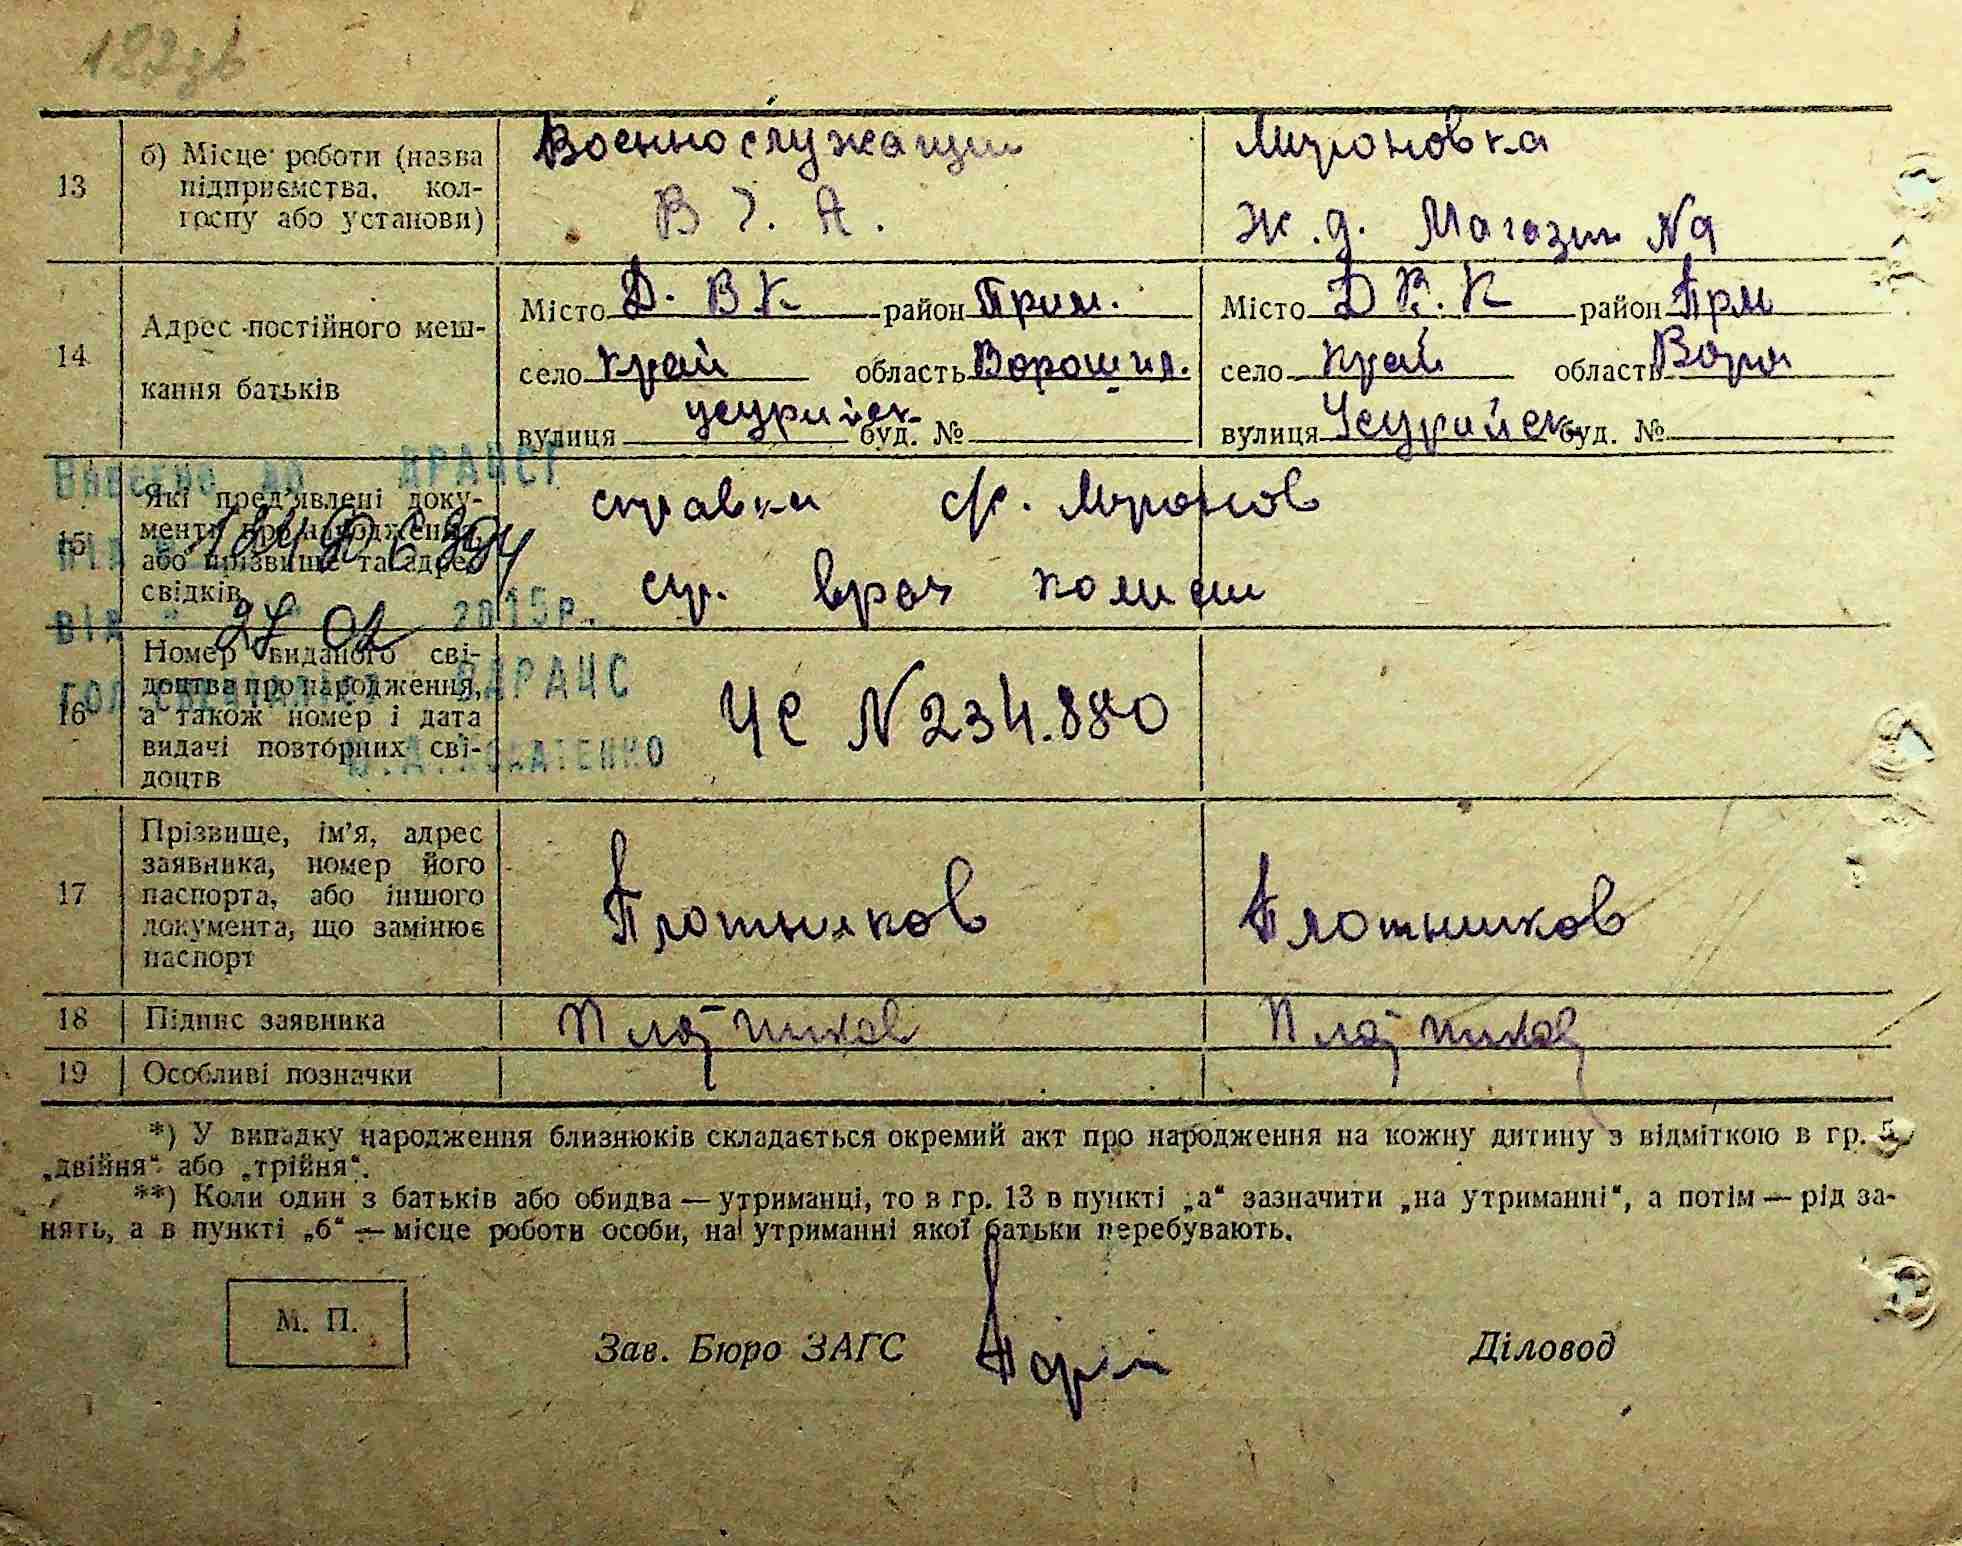 122зв
13
б) Місце роботи (назва
підприємства, кол-
госпу або установи)
Военнослужащи
В. А.
Мироновка
Ж.д. Магазин №9
14
Адрес постійного меш-
кання батьків
Місто Д. В К район Прим.
село край область Ворошил.
вулиця усурийск буд. №
Місто Д В. К район Прм
село край область Воро
вулиця Усурийск буд. №
15
Які пред'явлені доку-
менти про народження,
або прізвище та адрес
свідків
справки с/с. Миронов
ср. врач
Внесено до ДРАЦСГ
від 27 02 2015р.
ВДРАЦС
16
Номер виданого сві-
доцтва про народження,
а також номер і дата
видачі повторних сві-
доцтв
ЧС № 234.880
17
Прізвище, ім'я, адрес
заявника, номер його
паспорта, або іншого
документа, що замінює
паспорт
Плотников
Плотников
18
Підпис заявника
Плотников
Плотников
19
Особливі позначки
*) У випадку народження близнюків складається окремий акт про народження на кожну дитину з відміткою в гр. 5
„двійня“ або „трійня“.
**) Коли один з батьків або обидва — утриманці, то в гр. 13 в пункті „а“ зазначити „на утриманні“, а потім — рід за-
нять, а в пункті „б“ — місце роботи особи, на утриманні якої батьки перебувають.
М. П.
Зав. Бюро ЗАГС
Діловод